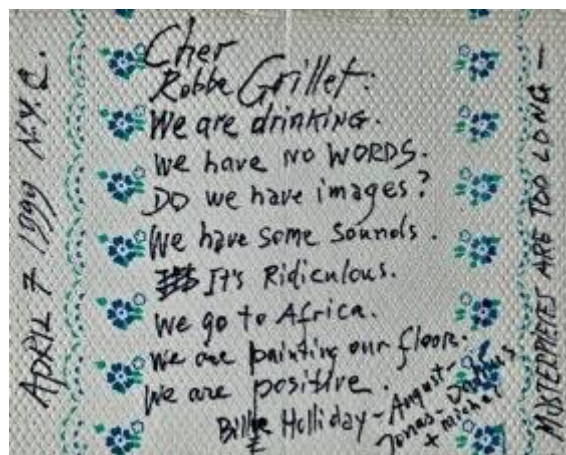 Cher
Robbe Grillet:
We are drinking.
We have NO WORDS.
DO we have images?
We have some sounds.
It's Ridiculous.
We go to Africa.
We are painting our floor.
We are positive.
Billie Holliday - August -
Jonas - Dorkus
+ michel
APRIL 7 1999 N.Y.C.
MASTERPIECES ARE TOO LONG —